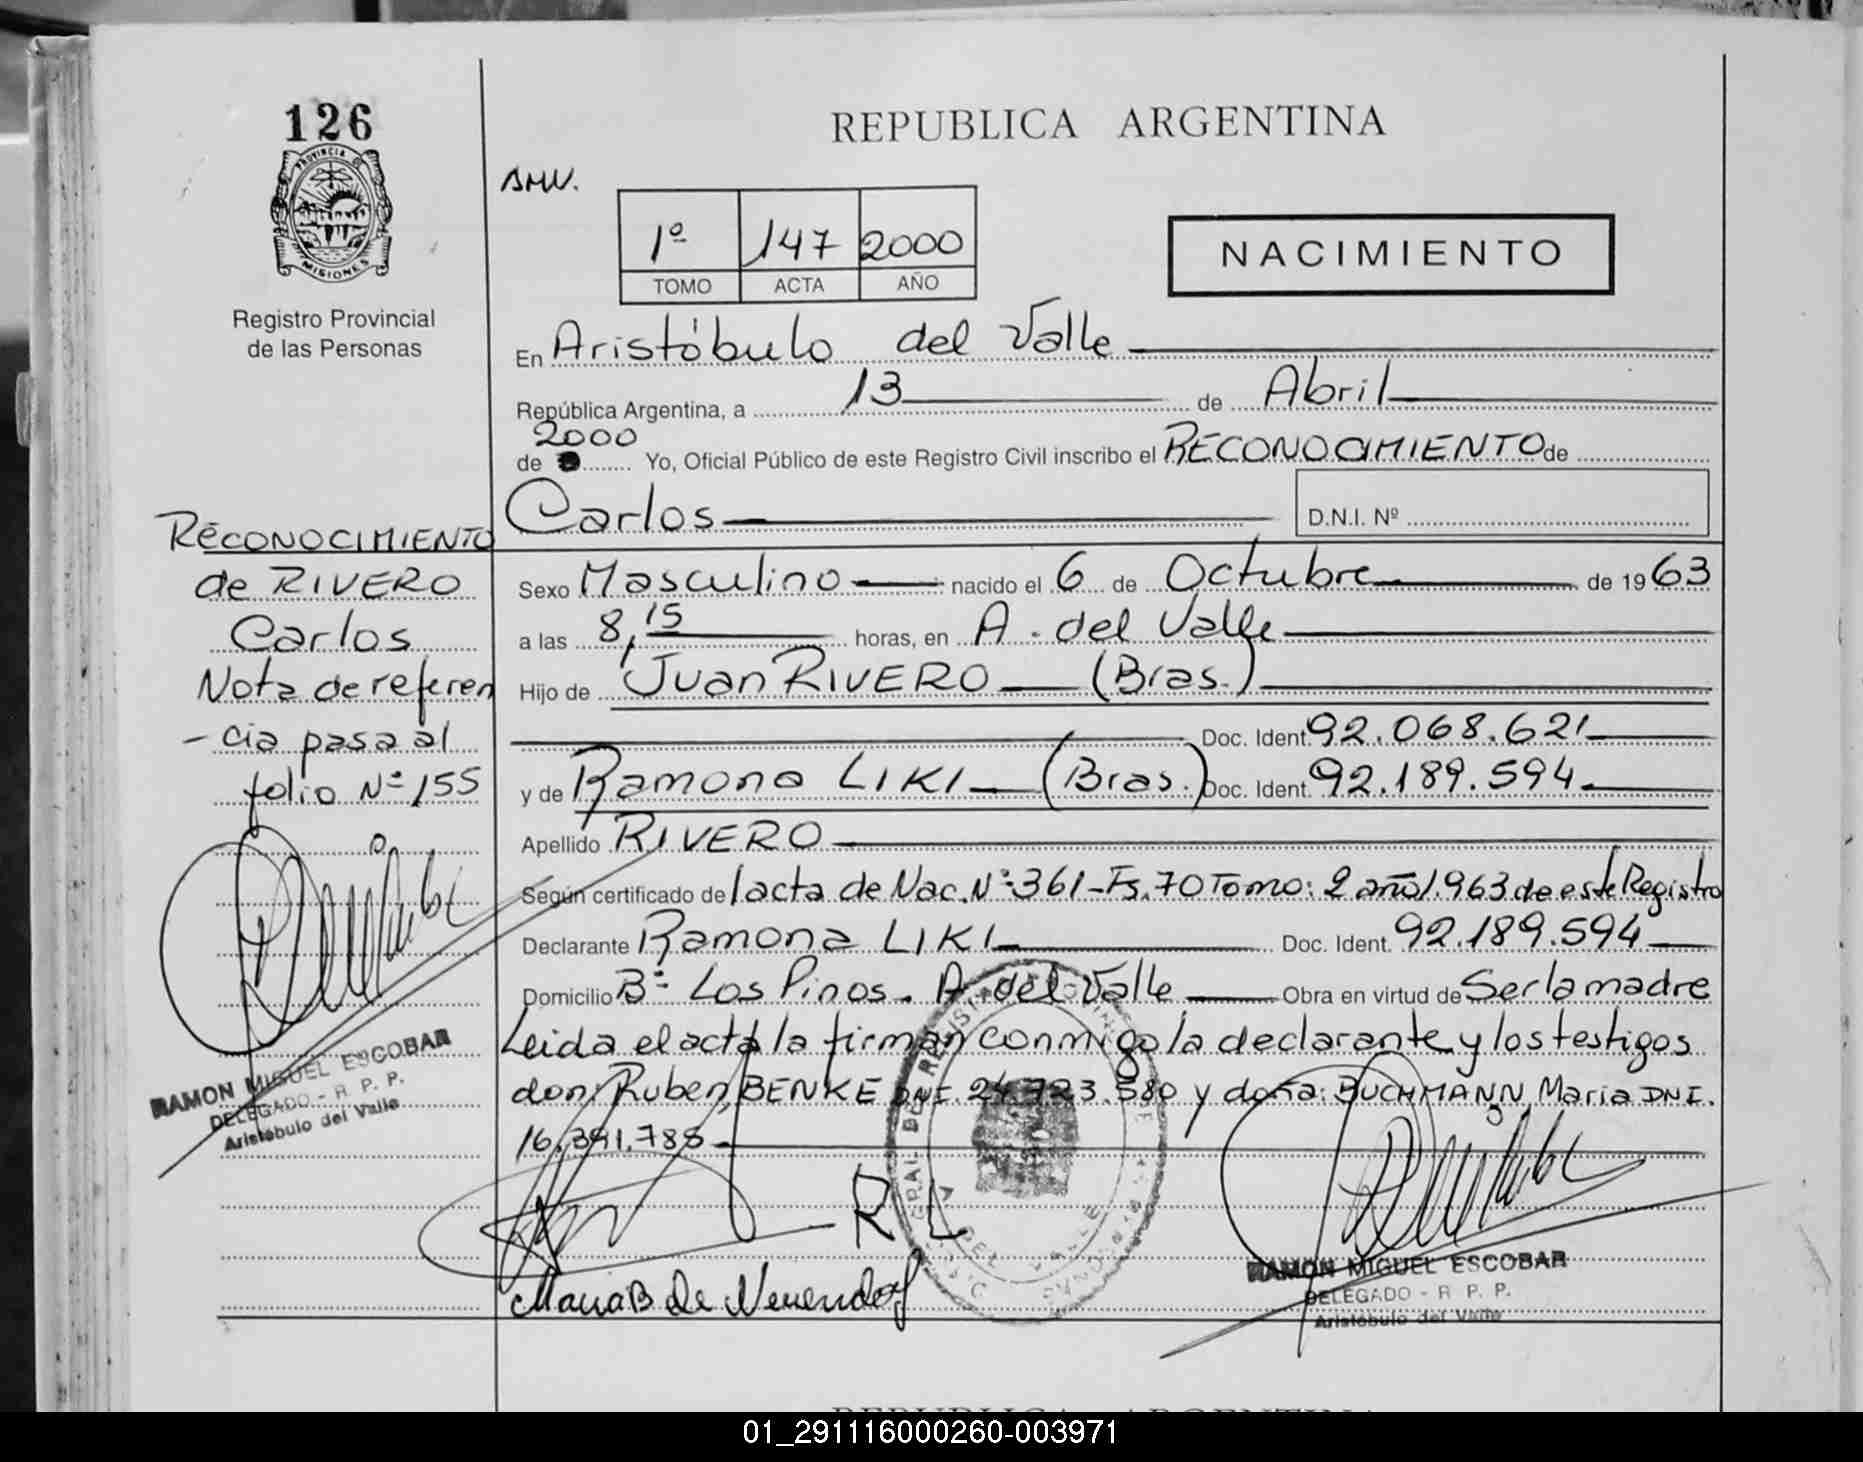 126
PROVINCIA DE
MISIONES
Registro Provincial
de las Personas
RECONOCIMIENTO
de RIVERO
Carlos
Nota de referen
- cia pasa al
folio Nº 155
RAMON MIGUEL ESCOBAR
DELEGADO - R. P. P.
Aristóbulo del Valle
REPUBLICA ARGENTINA
1º 147 2000
TOMO ACTA AÑO
NACIMIENTO
En Aristóbulo del Valle
República Argentina, a 13 de Abril
2000
de Yo, Oficial Público de este Registro Civil inscribo el RECONOCIMIENTO de
Carlos D.N.I. Nº
Sexo Masculino nacido el 6 de Octubre de 1963
a las 8,15 horas, en A. del Valle
Hijo de Juan RIVERO (Bras.)
Doc. Ident. 92.068.621
y de Ramona LIKI (Bras.) Doc. Ident. 92.189.594
Apellido RIVERO
Según certificado de acta de Nac. Nº 361 - Fs. 70 Tomo: 2 año 1.963 de este Registro
Declarante Ramona LIKI Doc. Ident. 92.189.594
Domicilio Bº Los Pinos. A. del Valle Obra en virtud de Ser la madre
Leida el acta la firman conmigo la declarante y los testigos
don: Ruben BENKE DNI. 24.723.580 y doña: BUCHMANN Maria DNI.
16.391.785
R L
Maria B de
RAMON MIGUEL ESCOBAR
DELEGADO - R. P. P.
Aristóbulo del Valle
REPUBLICA ARGENTINA
01_291116000260-003971